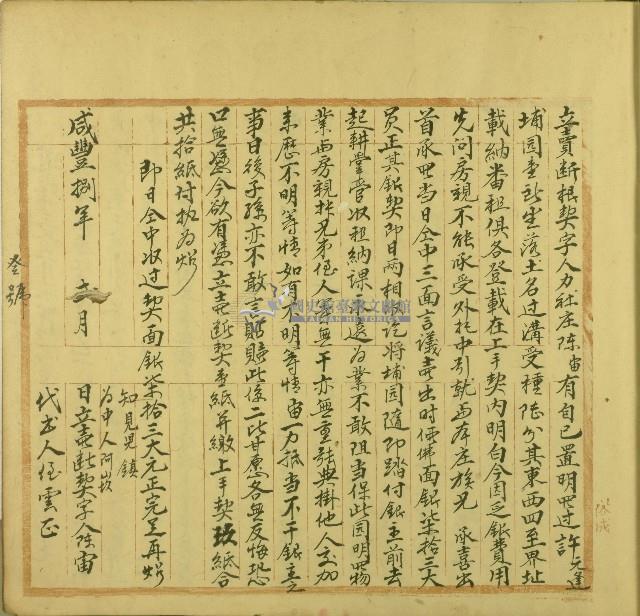 立賣斷根契字人力社庄陈宙有自己置明买过許元達
埔园壹所坐落土名过溝受種陸分其東西四至界址
載納番租俱各登載在上手契内明白今因乏銀費用
先问房親不能承受外托中引就与本庄族兄承喜出
首承买当日仝中三面言議賣出时價佛面銀柒拾三大
員正其銀契即日兩相交訖将埔园隨即踏付銀主前去
起耕掌管收租納課永遠为業不敢阻当保此园明買物
業与房親叔兄弟侄人等無干亦無重張典掛他人交加
来歷不明等情如有不明等情宙一力抵当不干銀主之
事日後子孫亦不敢言贖此係二比甘愿各無反悔恐
口無憑今欲有憑立賣断契壹紙并繳上手契玖紙合
共拾紙付执为炤
即日仝中收过契面銀柒拾三大元正完足再炤
知見兄鎮
为中人阿崁
咸豐捌年 六月 日立賣断契字人陈宙
代书人侄雲正
登號
國史館臺灣文獻館
TAIWAN HISTORICA